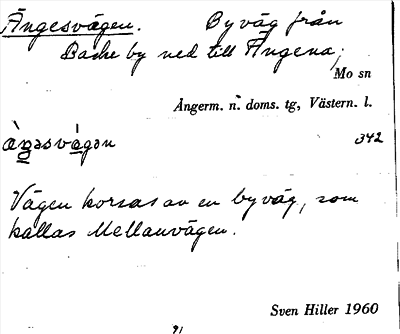 Ängesvägen. Byväg från
Backe by ned till Ängena,
Mo sn
Ångerm. n. doms. tg, Västern. l.
342
Vägen korsas av en byväg, som
kallas Mellanvägen.
Sven Hiller 1960